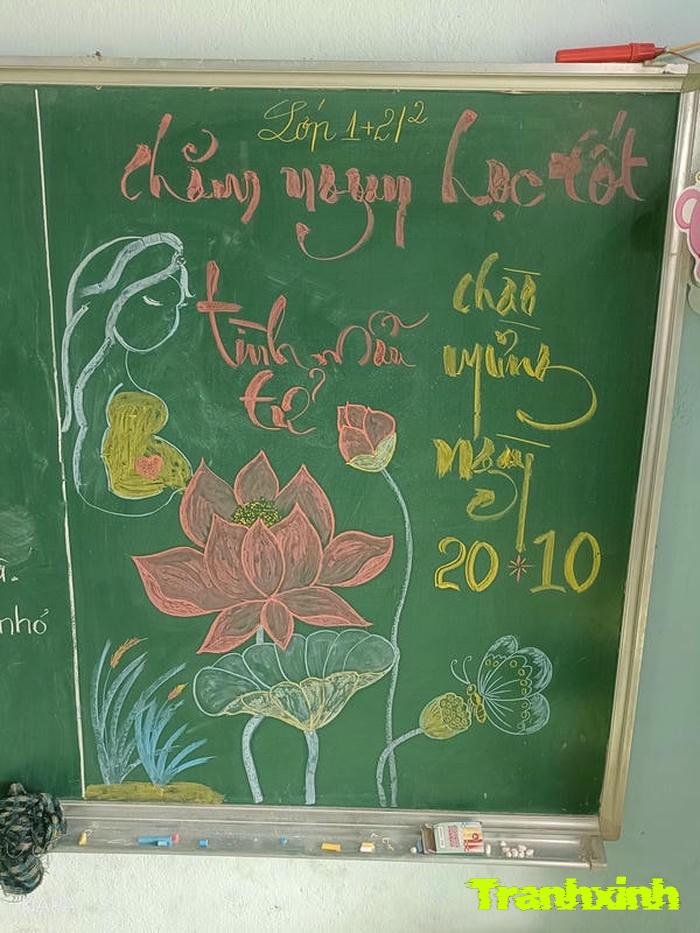 Lớp 1+2/2
chăm ngoan học tốt
tình mẫu
tử
chào
mừng
ngày
20 * 10
nhỏ
Tranhxinh